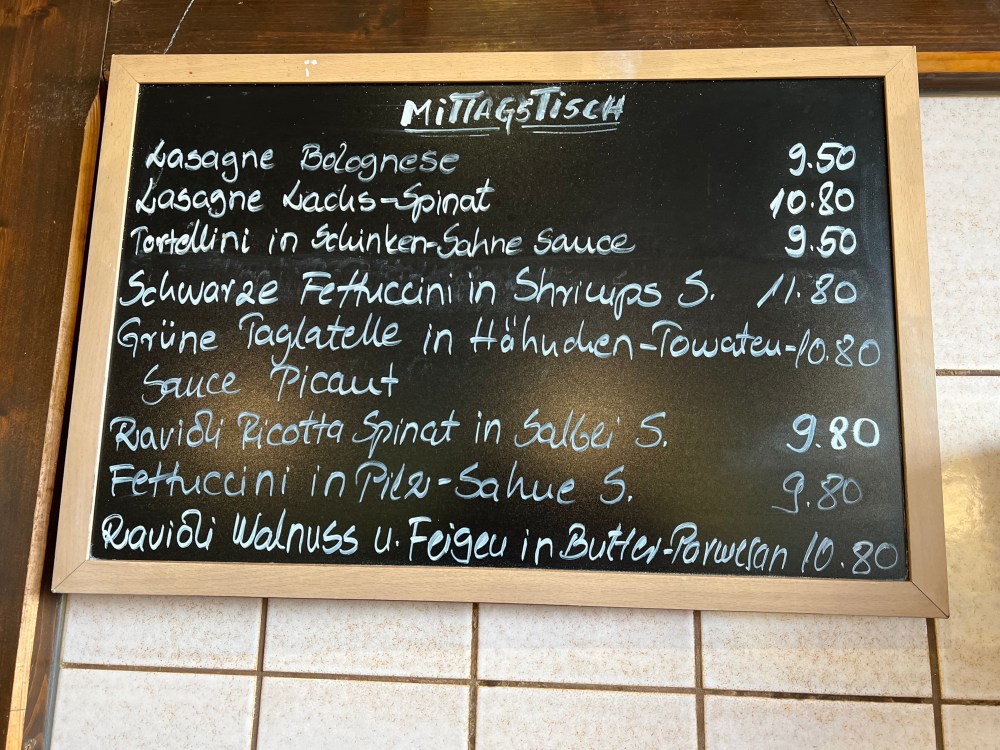 MITTAGSTISCH
Lasagne Bolognese 9.50
Lasagne Lachs-Spinat 10.80
Tortellini in Schinken-Sahne Sauce 9.50
Schwarze Fettuccini in Shrimps S. 11.80
Grüne Taglatelle in Hähnchen-Tomaten- 10.80
Sauce Picant
Ravioli Ricotta Spinat in Salbei S. 9.80
Fettuccini in Pilz-Sahne S. 9.80
Ravioli Walnuss u. Feigen in Butter-Parmesan 10.80